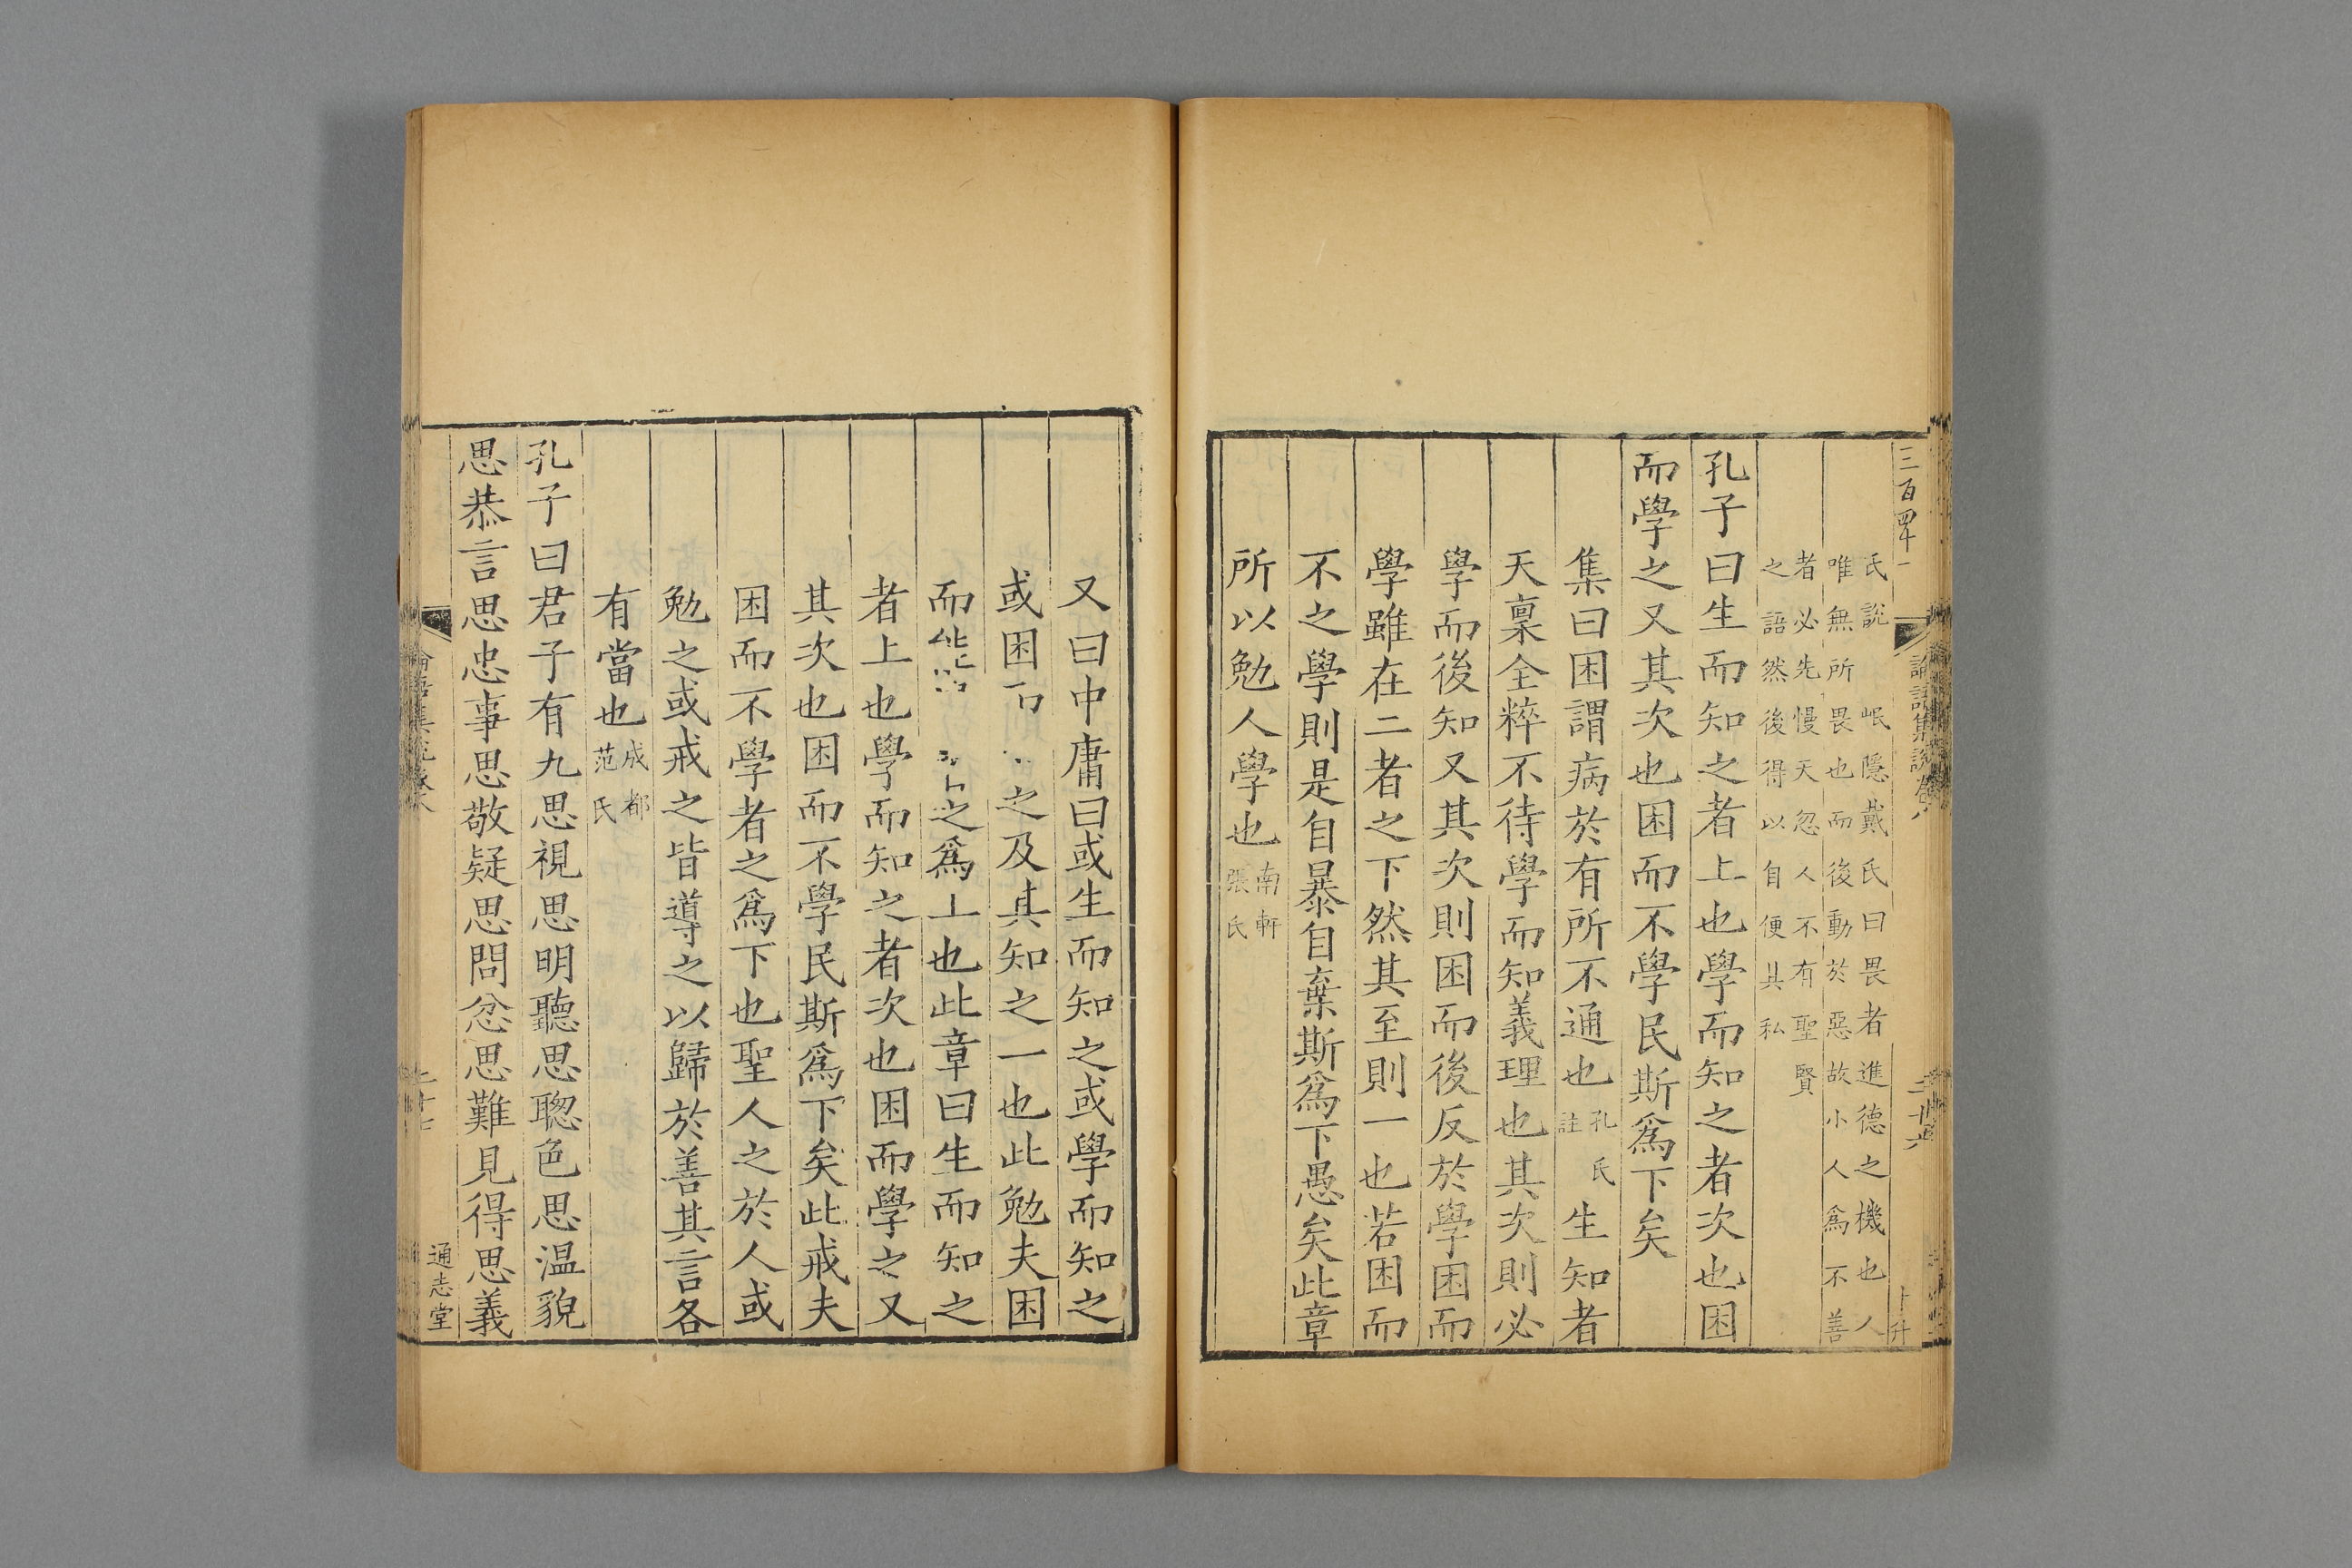 三百四十一
氏說　岷隱戴氏曰畏者進德之機也人
唯無所畏也而後動於惡故小人爲不善
者必先慢天忽人不有聖賢
之語然後得以自便其私
孔子曰生而知之者上也學而知之者次也困
而學之又其次也困而不學民斯爲下矣
集曰困謂病於有所不通也孔氏註生知者
天稟全粹不待學而知義理也其次則必
學而後知又其次則困而後反於學困而
學雖在二者之下然其至則一也若困而
不之學則是自暴自棄斯爲下愚矣此章
所以勉人學也南軒張氏
又曰中庸曰或生而知之或學而知之
或困而之及其知之一也此勉夫困
而之爲上也此章曰生而知之
者上也學而知之者次也困而學之又
其次也困而不學民斯爲下矣此戒夫
困而不學者之爲下也聖人之於人或
勉之或戒之皆導之以歸於善其言各
有當也成都范氏
孔子曰君子有九思視思明聽思聰色思温貌
思恭言思忠事思敬疑思問忿思難見得思義
通志堂